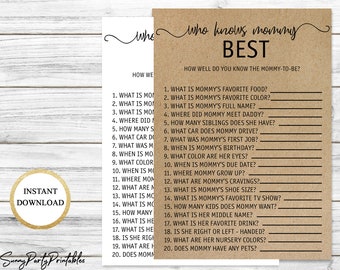 who knows mommy
BEST
HOW WELL DO YOU KNOW THE MOMMY-TO-BE?
1. WHAT IS MOMMY'S FAVORITE FOOD?
2. WHAT IS MOMMY'S FAVORITE COLOR?
3. WHAT IS MOMMY'S FULL NAME?
4. WHERE DID MOMMY MEET DADDY?
5. HOW MANY SIBLINGS DOES SHE HAVE?
6. WHAT CAR DOES MOMMY DRIVE?
7. WHAT WAS MOMMY'S FIRST JOB?
8. WHEN IS MOMMY'S BIRTHDAY?
9. WHAT COLOR ARE HER EYES?
10. WHEN IS MOMMY'S DUE DATE?
11. WHERE MOMMY GROW UP?
12. WHAT ARE MOMMY'S CRAVINGS?
13. WHAT IS MOMMY'S SHOE SIZE?
14. WHAT IS MOMMY'S FAVORITE TV SHOW?
15. HOW MANY KIDS DOES MOMMY WANT?
16. WHAT IS HER MIDDLE NAME?
17. WHAT IS HER FAVORITE DRINK?
18. IS SHE RIGHT OR LEFT - HANDED?
19. WHAT ARE HER NURSERY COLORS?
20. DOES MOMMY HAVE ANY PETS?
who
HOW WE
1. WHAT IS MOMM
2. WHAT IS MOMM
3. WHAT IS MOMM
4. WHERE DID MO
5. HOW MANY SIB
6. WHAT CAR DOE
7. WHAT WAS MO
8. WHEN IS MOM
9. WHAT COLOR A
10. WHEN IS MOM
11. WHERE MOMM
12. WHAT ARE MO
13. WHAT IS MOM
14. WHAT IS MOM
15. HOW MANY K
16. WHAT IS HER
17. WHAT IS HER
18. IS SHE RIGHT
19. WHAT ARE HE
20. DOES MOMM
INSTANT
DOWNLOAD
SunnyPartyPrintables